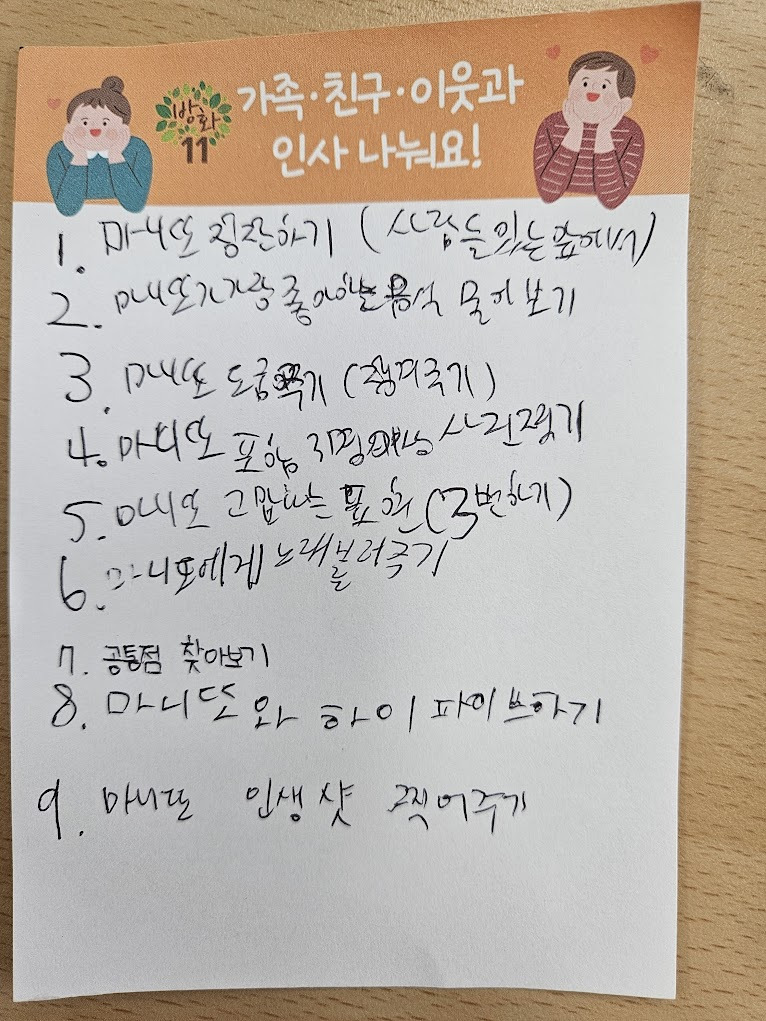 방화
11
가족·친구·이웃과
인사 나눠요!
1. 마니또 칭찬하기 (사람들 있는 앞에서)
2. 마니또가 가장 좋아하는 음식 물어보기
3. 마니또 도움주기 (챙겨주기)
4. 마니또 포함 3명이상 사진찍기
5. 마니또 고맙다는 표현 (3번하기)
6. 마니또에게 노래 불러주기
7. 공통점 찾아보기
8. 마니또와 하이파이브하기
9. 마니또 인생샷 찍어주기